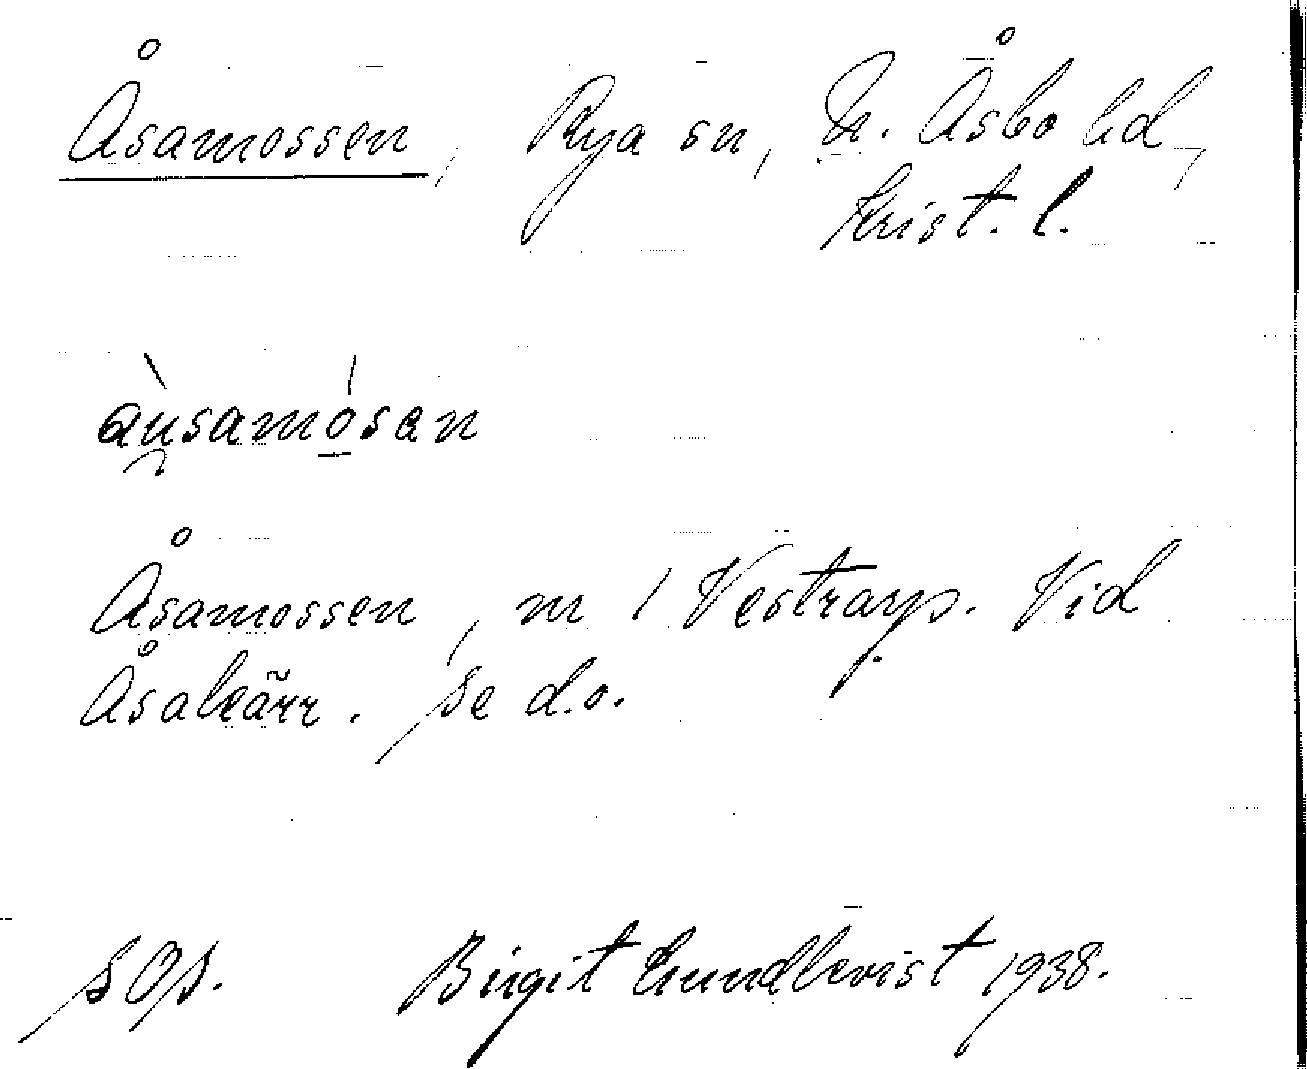 Åsamossen, Rya sn, N. Åsbo hd,
Krist. l.
àu̯samó̠san
Åsamossen, nr 1 Vestrarp. Vid
Åsakärr. Se d.o.
SOS. Birgit Lundkvist 1938.